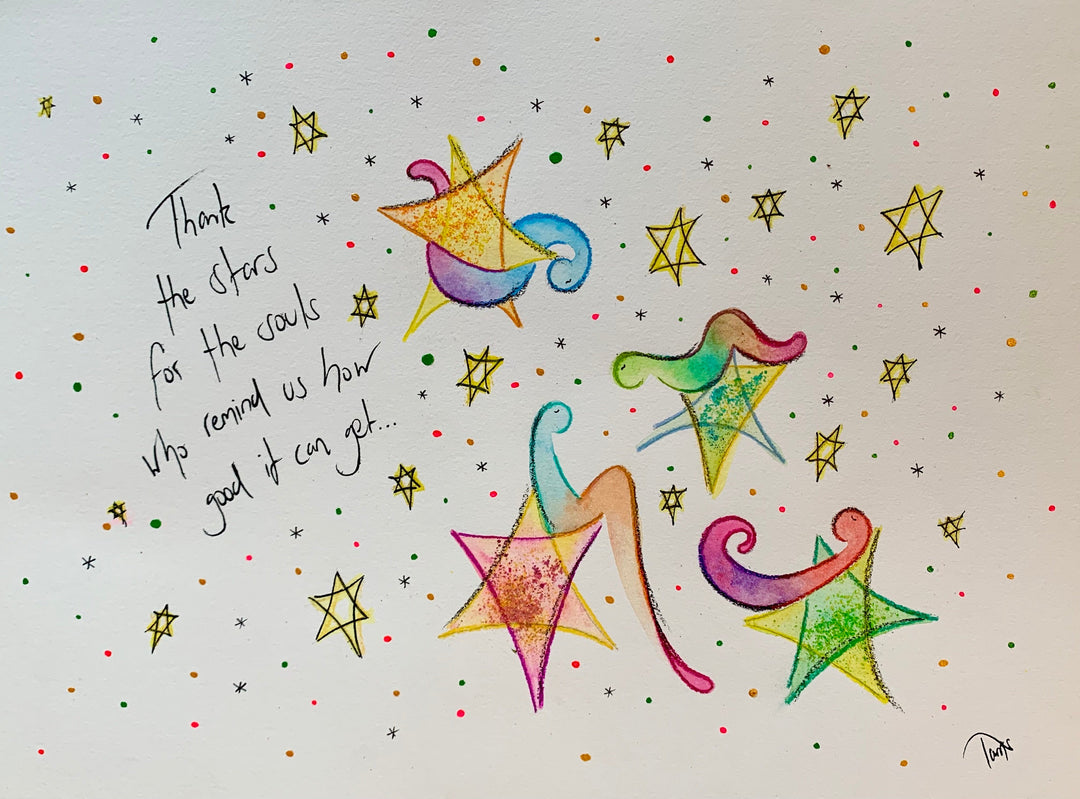 Thank
the stars
for the souls
who remind us how
good it can get...